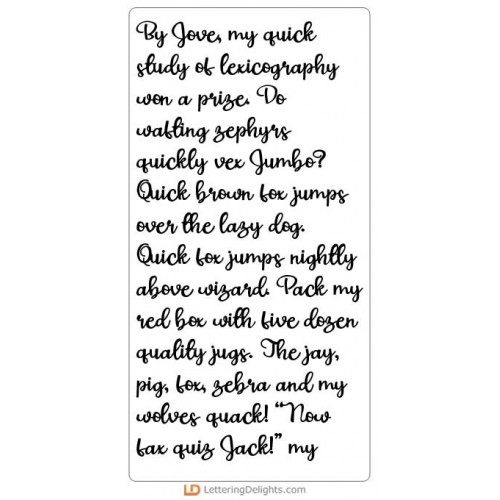 By Jove, my quick
study of lexicography
won a prize. Do
wafting zephyrs
quickly vex Jumbo?
Quick brown fox jumps
over the lazy dog.
Quick fox jumps nightly
above wizard. Pack my
red box with five dozen
quality jugs. The jay,
pig, fox, zebra and my
wolves quack! “Now
fax quiz Jack!” my
LD LetteringDelights.com